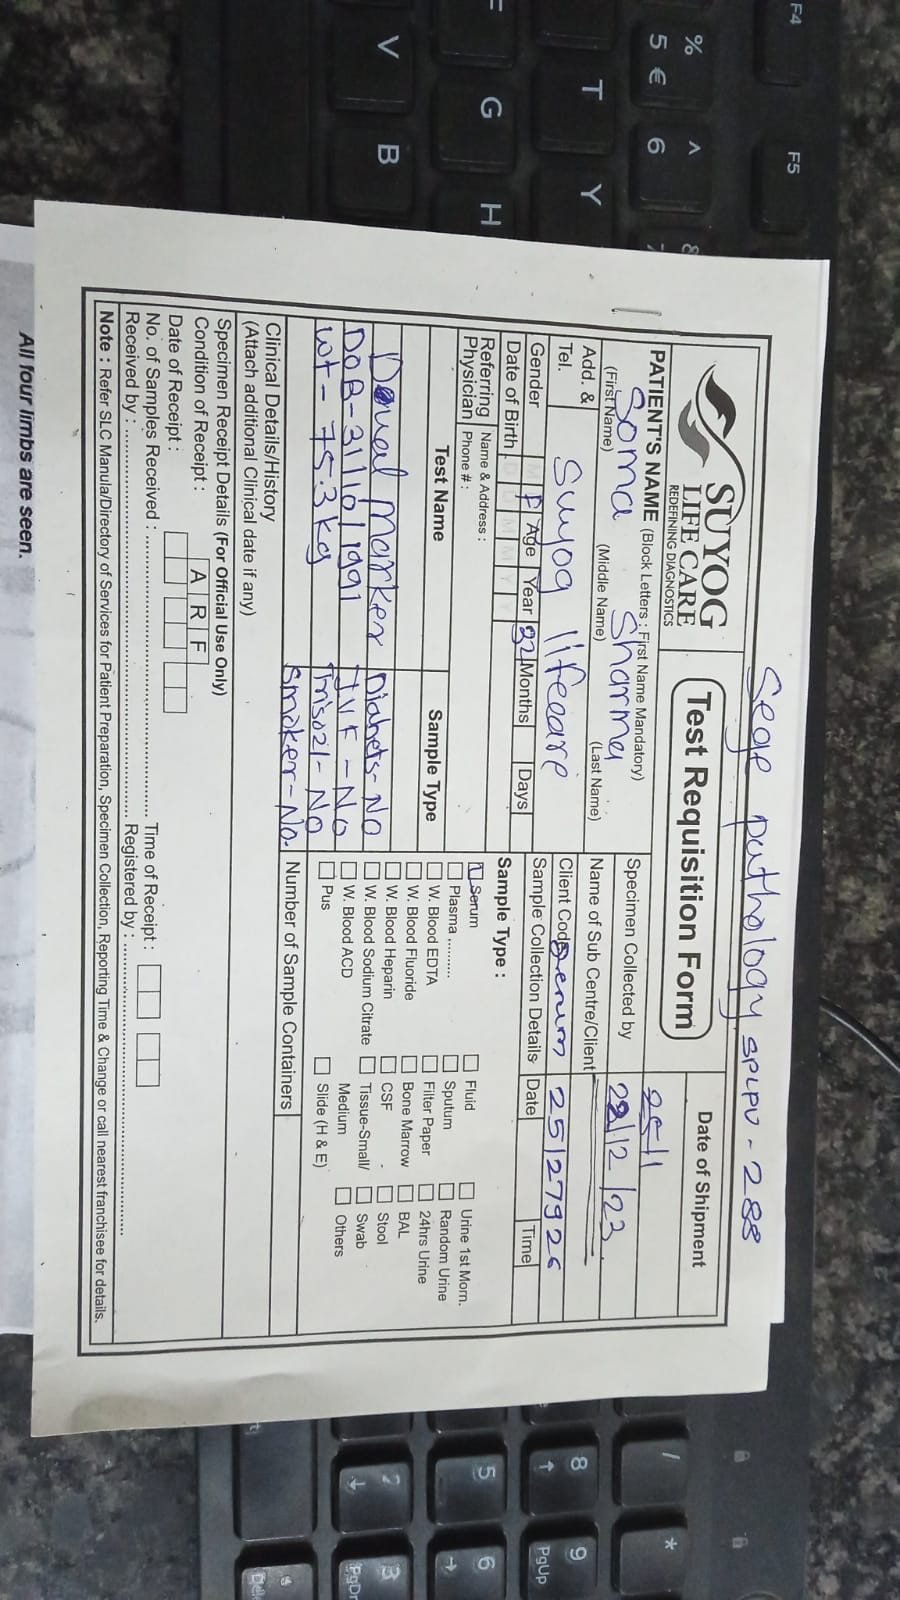 Sege pathology SPLPU - 288
SUYOG
LIFE CARE
REDEFINING DIAGNOSTICS
Test Requisition Form
Date of Shipment
PATIENT'S NAME (Block Letters : First Name Mandatory)
Soma Sharma
(First Name) (Middle Name) (Last Name)
Specimen Collected by
/12/23
Add. &
Tel.
Suyog lifecare
Name of Sub Centre/Client
Client Code Serum 25127926
Gender M F Age Year 32 Months Days
Sample Collection Details Date Time
Date of Birth D D M M Y Y
Referring Physician
Name & Address :
Phone # :
Test Name
Sample Type
Doual Marker
DOB - 31/10/1991
wt - 75.3 kg
Diabets - No
IVF - No
Trisozil - No
Smoker - No.
Sample Type :
Serum
Plasma ..........
W. Blood EDTA
W. Blood Fluoride
W. Blood Heparin
W. Blood Sodium Citrate
W. Blood ACD
Pus
Fluid
Sputum
Filter Paper
Bone Marrow
CSF
Tissue-Small/
Medium
Slide (H & E)
Urine 1st Morn.
Random Urine
24hrs Urine
BAL
Stool
Swab
Others
Number of Sample Containers
Clinical Details/History
(Attach additional Clinical date if any)
Specimen Receipt Details (For Official Use Only)
Condition of Receipt : A R F
Date of Receipt : Time of Receipt :
No. of Samples Received :
Received by : Registered by :
Note : Refer SLC Manula/Directory of Services for Patient Preparation, Specimen Collection, Reporting Time & Change or call nearest franchisee for details.
All four limbs are seen.
F4
F5
% 5 €
^ 6
T
Y
G
H
V
B
/
*
8
9 PgUp
5
6
2
3 PgDn
Del